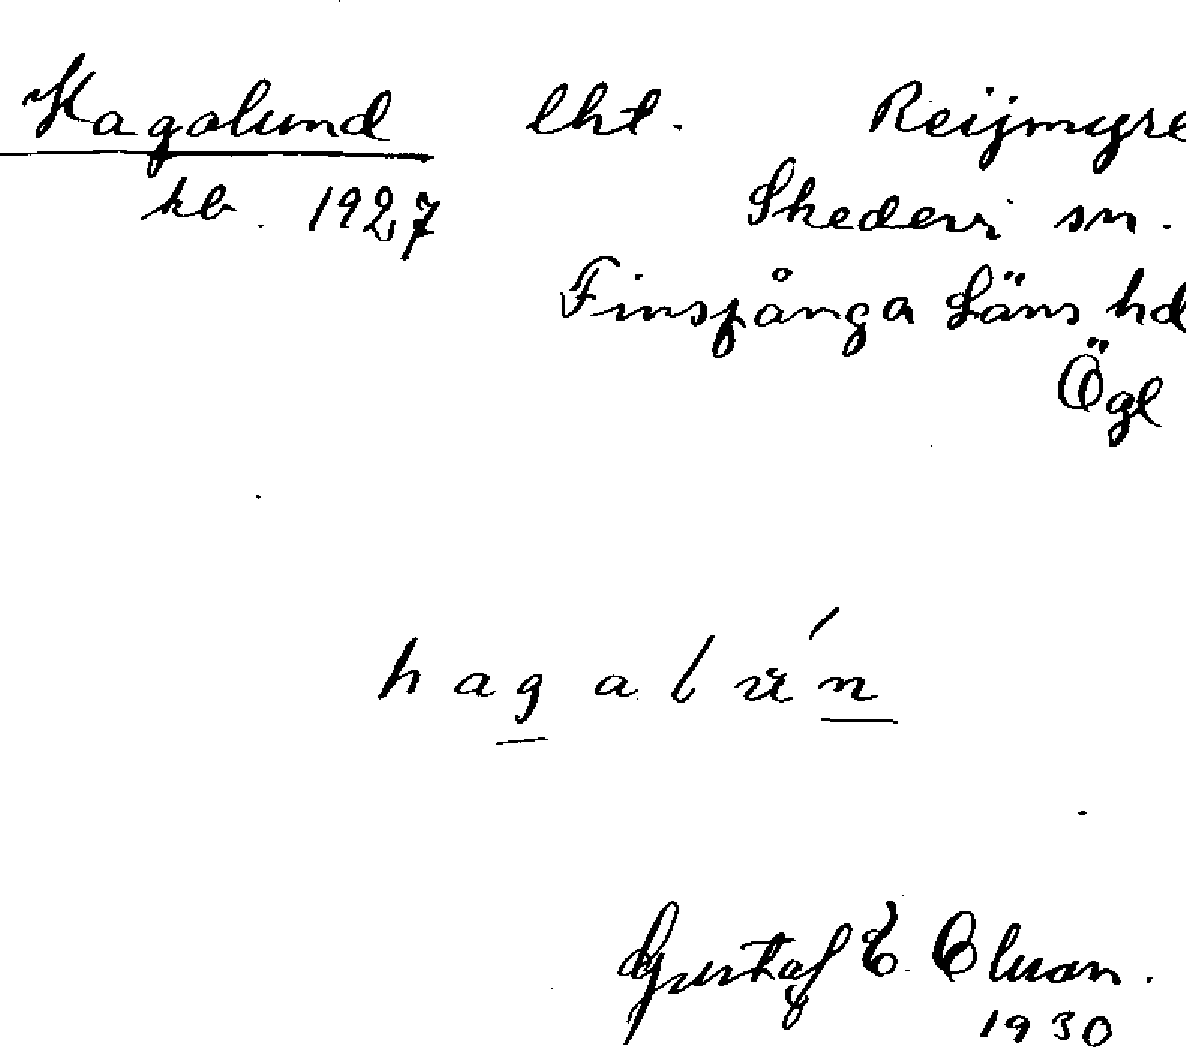 Hagalund lht. Reijmyre
kb. 1927 Skedevi sn.
Finspånga Läns hd
Ögl
hagalún
Gustaf E.
1930